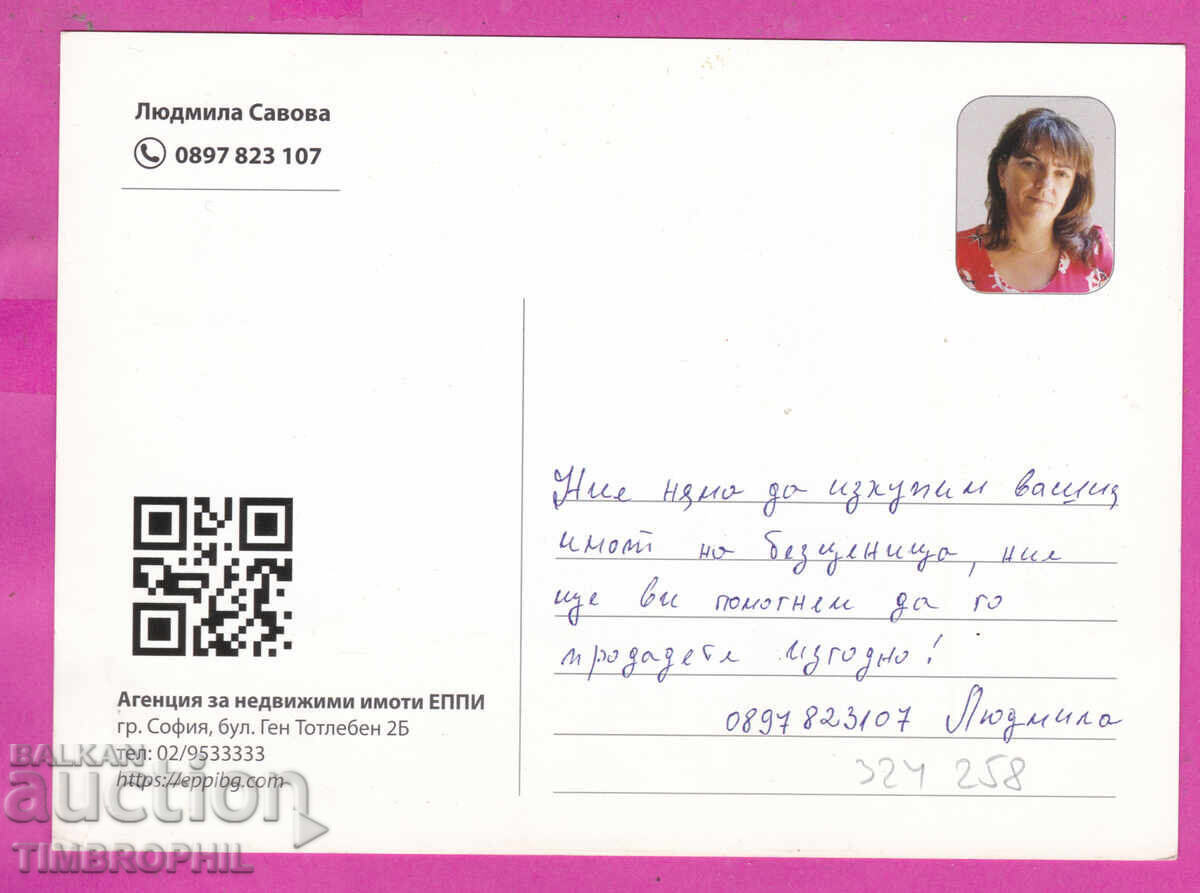 Людмила Савова
0897 823 107
Ние няма да изкупим вашия
имот на безценица, ние
ще ви помогнем да го
продадете изгодно!
0897823107 Людмила
324 258
Агенция за недвижими имоти ЕППИ
гр. София, бул. Ген Тотлебен 2Б
тел: 02/9533333
https://eppibg.com
BALKAN
auction
TIMBROPHIL